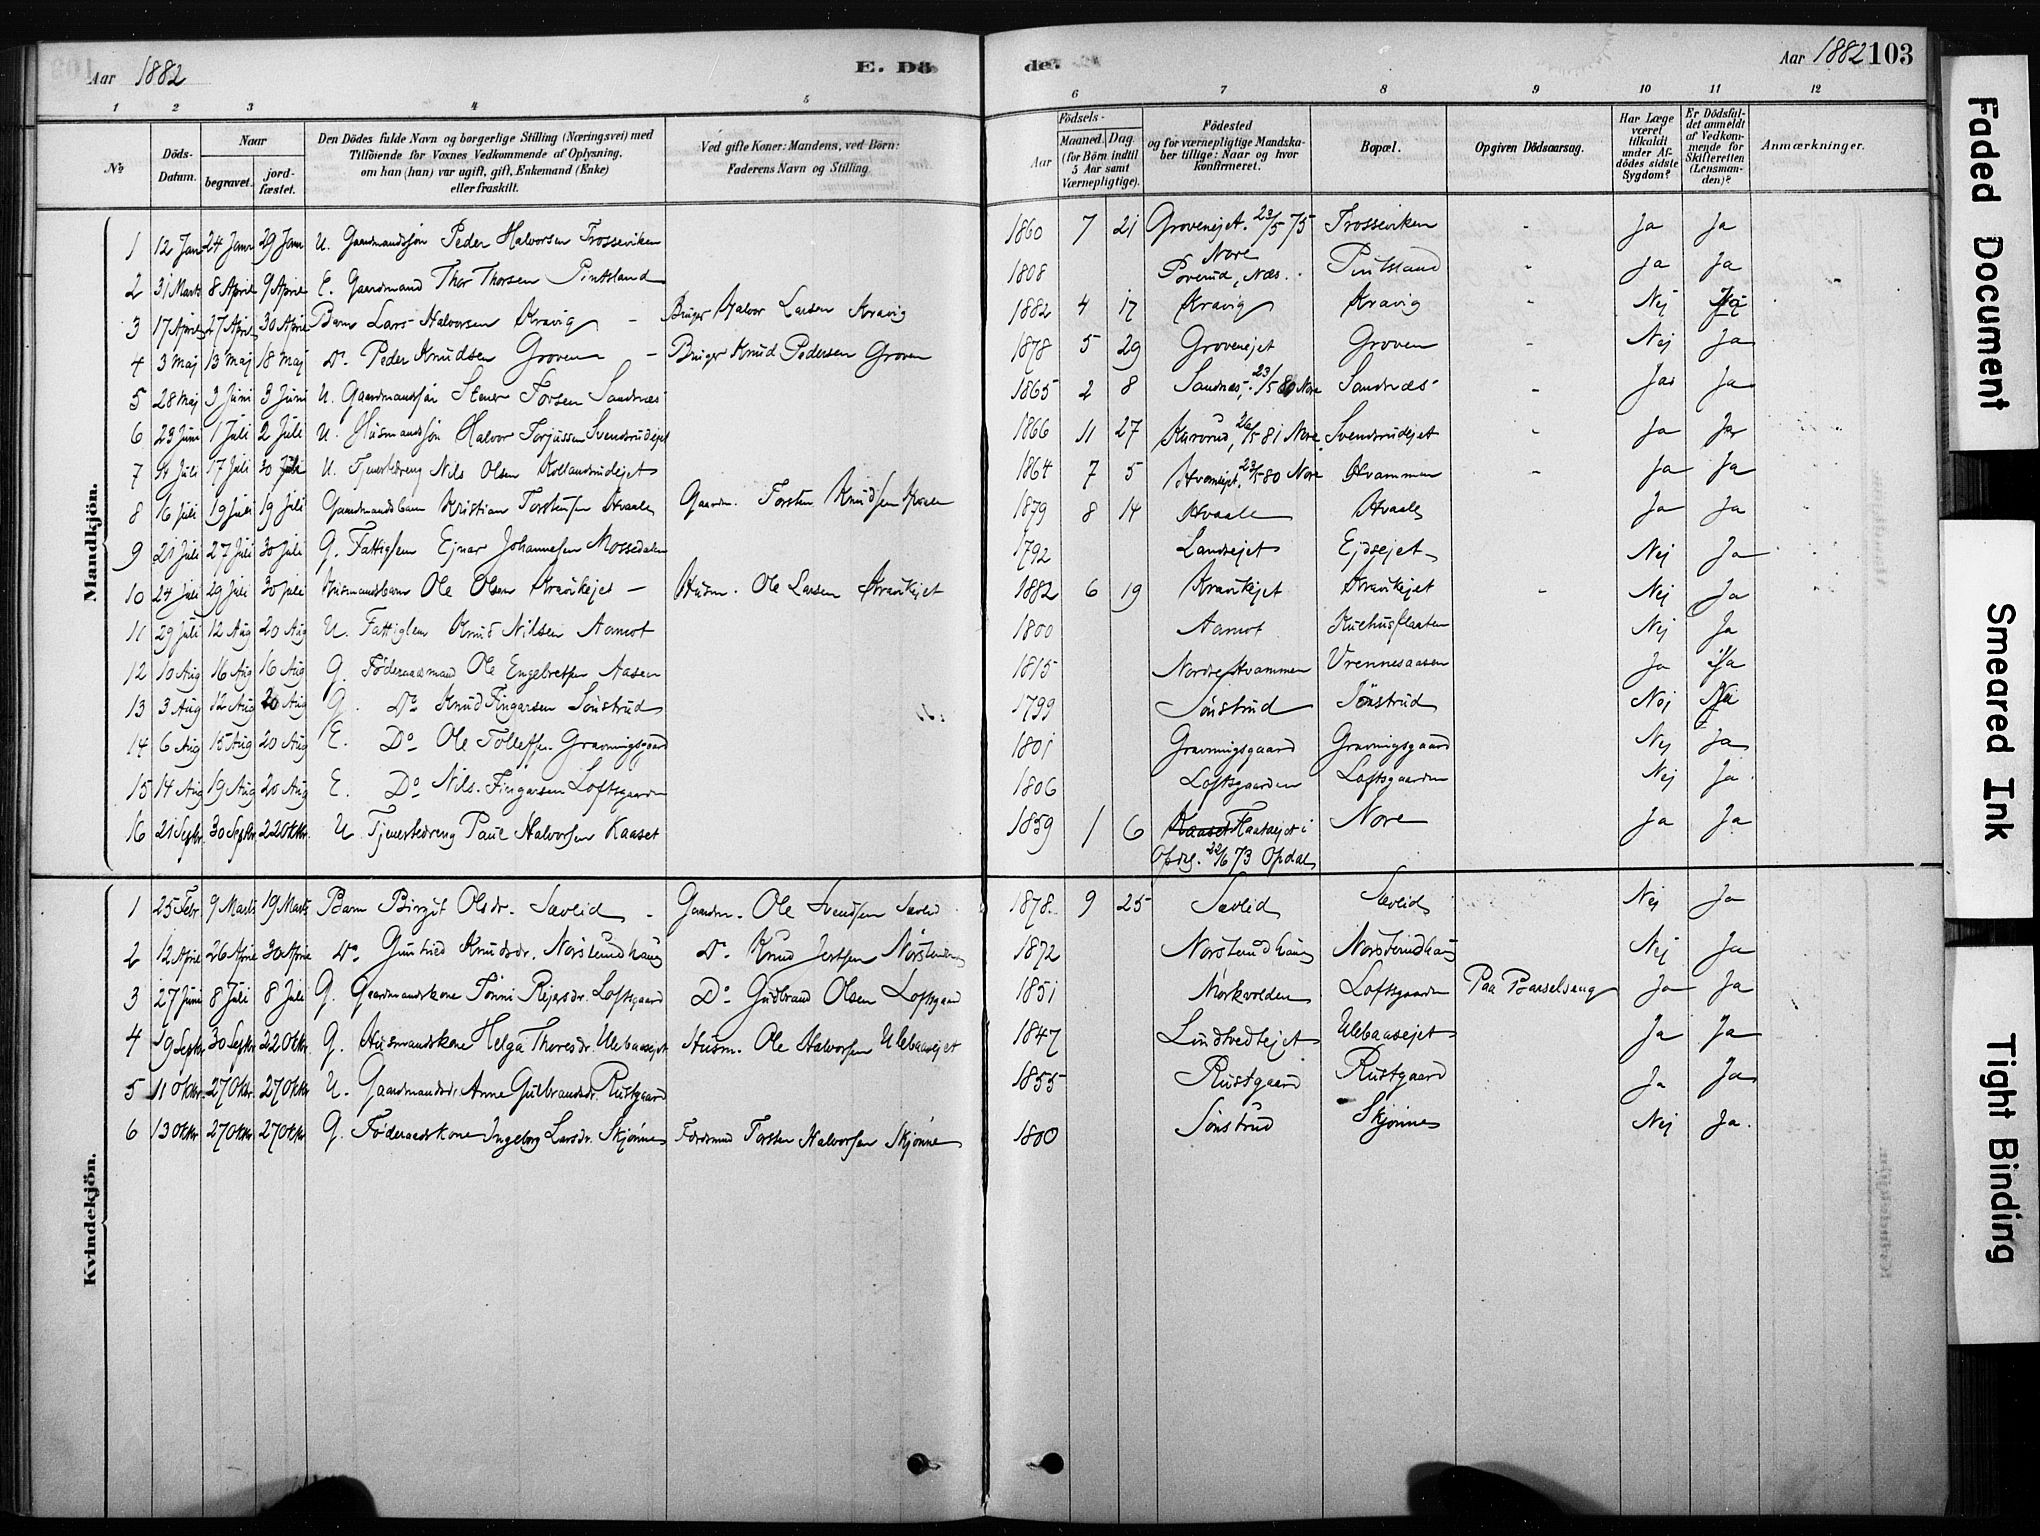 Aar 1882
E. Dö
de.
Aar 1882 103
1 2 3 4 5 6 7 8 9 10 11 12
No
Döds-Datum.
Naar
begravet.
jord-fæstet.
Den Dödes fulde Navn og borgerlige Stilling (Næringsvei) med
Tilföiende for Voxnes Vedkommende af Oplysning,
om han (hun) var ugift, gift, Enkemand (Enke)
eller fraskilt.
Ved gifte Koner: Mandens, ved Börn:
Faderens Navn og Stilling
Födsels-
Aar
Maaned. Dag.
(for Börn indtil
5 Aar samt
Værnepligtige).
Födested
og for værnepligtige Mandska-
ber tillige: Naar og hvor
konfirmeret.
Bopæl.
Opgiven Dödsaarsag.
Har Læge
været
tilkaldt
under Af-
dödes sidste
Sygdom?
Er Dödsfal-
det anmeldt
af Vedkom-
mende for
Skifteretten
(Lensman-
den)?
Anmærkninger.
Mandkjön.
1 12 Jan 24 Janr 29 Janr U. Gaardmandssøn Peder Halvorsen Trosseviken 1860 7 21 Grovenejet. 23/5 75 Nore Trosseviken - Ja Ja
2 31 Marts 8 April 9 April E. Gaardmand Thor Thorsen Pintsland 1808 Næs. Pintsland - Ja Ja
3 17 April 27 April 30 April Barn Lars Halvorsen Kravig - Bruger Halvor Larsen Kravig 1882 4 17 Kravig Kravig - Nej Ja
4 3 Maj 13 Maj 18 Maj Do. Peder Knudsen Groven - Bruger Knud Pedersen Groven 1878 5 29 Grovenejet Groven - Nej Ja
5 28 Maj 3 Juni 3 Juni U. Gaardmandssøn Stener Torsen Sandnæs 1865 2 8 Sandnæs, 23/5 80 Nore Sandnæs - Ja Ja
6 23 Juni 1 Juli 2 Juli U. Husmandssøn Halvor Torjussen Svendsrudejet 1866 11 27 Karvrud, 26/5 81 Nore Svendsrudejet - Ja Ja
7 Juli 17 Juli 30 Juli U. Tjenestedreng Nils Olsen Kollandsrudejet 1864 7 5 23/5 80 Nore Hvammen - Ja Ja
8 16 Juli 19 Juli 19 Juli Gaardmandsbarn Kristian Torstensen Hvaale Gaardm. Torsten Knudsen Hvaale 1879 8 14 Hvaale Hvaale Ja Ja
9 21 Juli 27 Juli 30 Juli G. Fattiglem Ejnar Johannesen Mossedalen 1792 Landsejet Ejdsejet Nej Ja
10 24 Juli 29 Juli 30 Juli Husmandsbarn Ole Olsen Kravikejet - Husm. Ole Larsen Kravikejet 1882 6 19 Kravikejet Kravikejet - Nej Ja
11 29 Juli 12 Aug 20 Aug U. Fattiglem Knud Nilsen Aamot 1800 Aamot Nej Ja
12 10 Aug 16 Aug 16 Aug G. Føderaadsmand Ole Engebretsen Aasen 1815 Nordre Hvammen Vrennesaasen Ja Ja
13 3 Aug 12 Aug 20 Aug G. Do Knud Fingarsen Sønstrud 1799 Sønstrud Sønstrud Nej Ja
14 6 Aug 15 Aug 20 Aug E. Do Ole Tollefsen Gravningsgaard 1801 Gravningsgaard Gravningsgaard Nej Ja
15 14 Aug 19 Aug 20 Aug E. Do Nils Fingarsen Loftsgaarden 1806 Loftsgaarden Loftsgaarden Nej Ja
16 21 Septr. 30 Septr. 22 Oktbr. U. Tjenestedreng Paul Halvorsen Kaaset 1859 1 6 Kaaset i Opdal. 22/6 73 Opdal Nore Ja Ja
Kvindekjön.
1 25 Febr. 9 Marts 19 Marts Barn Birgit Olsdr. Sævlid - Gaardm. Ole Svendsen Sævlid 1878. 9 25 Sævlid Sævlid Nej Ja
2 12 April 26 April 30 April Do Gunhild Knudsdr. Norsterudhaug Do. Knud 1872 Norsterudhaug Norsterudhaug Nej Ja
3 27 Juni 8 Juli 8 Juli G. Gaardmandskone Tønni Rejersdr. Loftsgaard Do Gudbrand Olsen Loftsgaard 1851 Mørkvolden Loftsgaarden Paa Barselseng Ja Ja
4 19 Septr. 30 Septr. 22 Oktbr. G. Husmandskone Helga Thoresdr. Ulebaasejet Husm. Ole Halvorsen Ulebaasejet 1847 Lindtvedtejet Ulebaasejet Ja Ja
5 11 Oktbr. 27 Oktbr. 27 Oktbr. U. Gaardmandsdr. Anne Gulbrandsdr. Rustgaard 1855 Rustgaard Rustgaard Ja Ja
6 13 Oktbr. 27 Oktbr. 27 Oktbr. G. Føderaadskone Ingeborg Larsdr. Skjønne Torsten Halvorsen Skjønne 1800 Sønstrud Skjønne Nej Ja.
Faded Document
Smeared Ink
Tight Binding